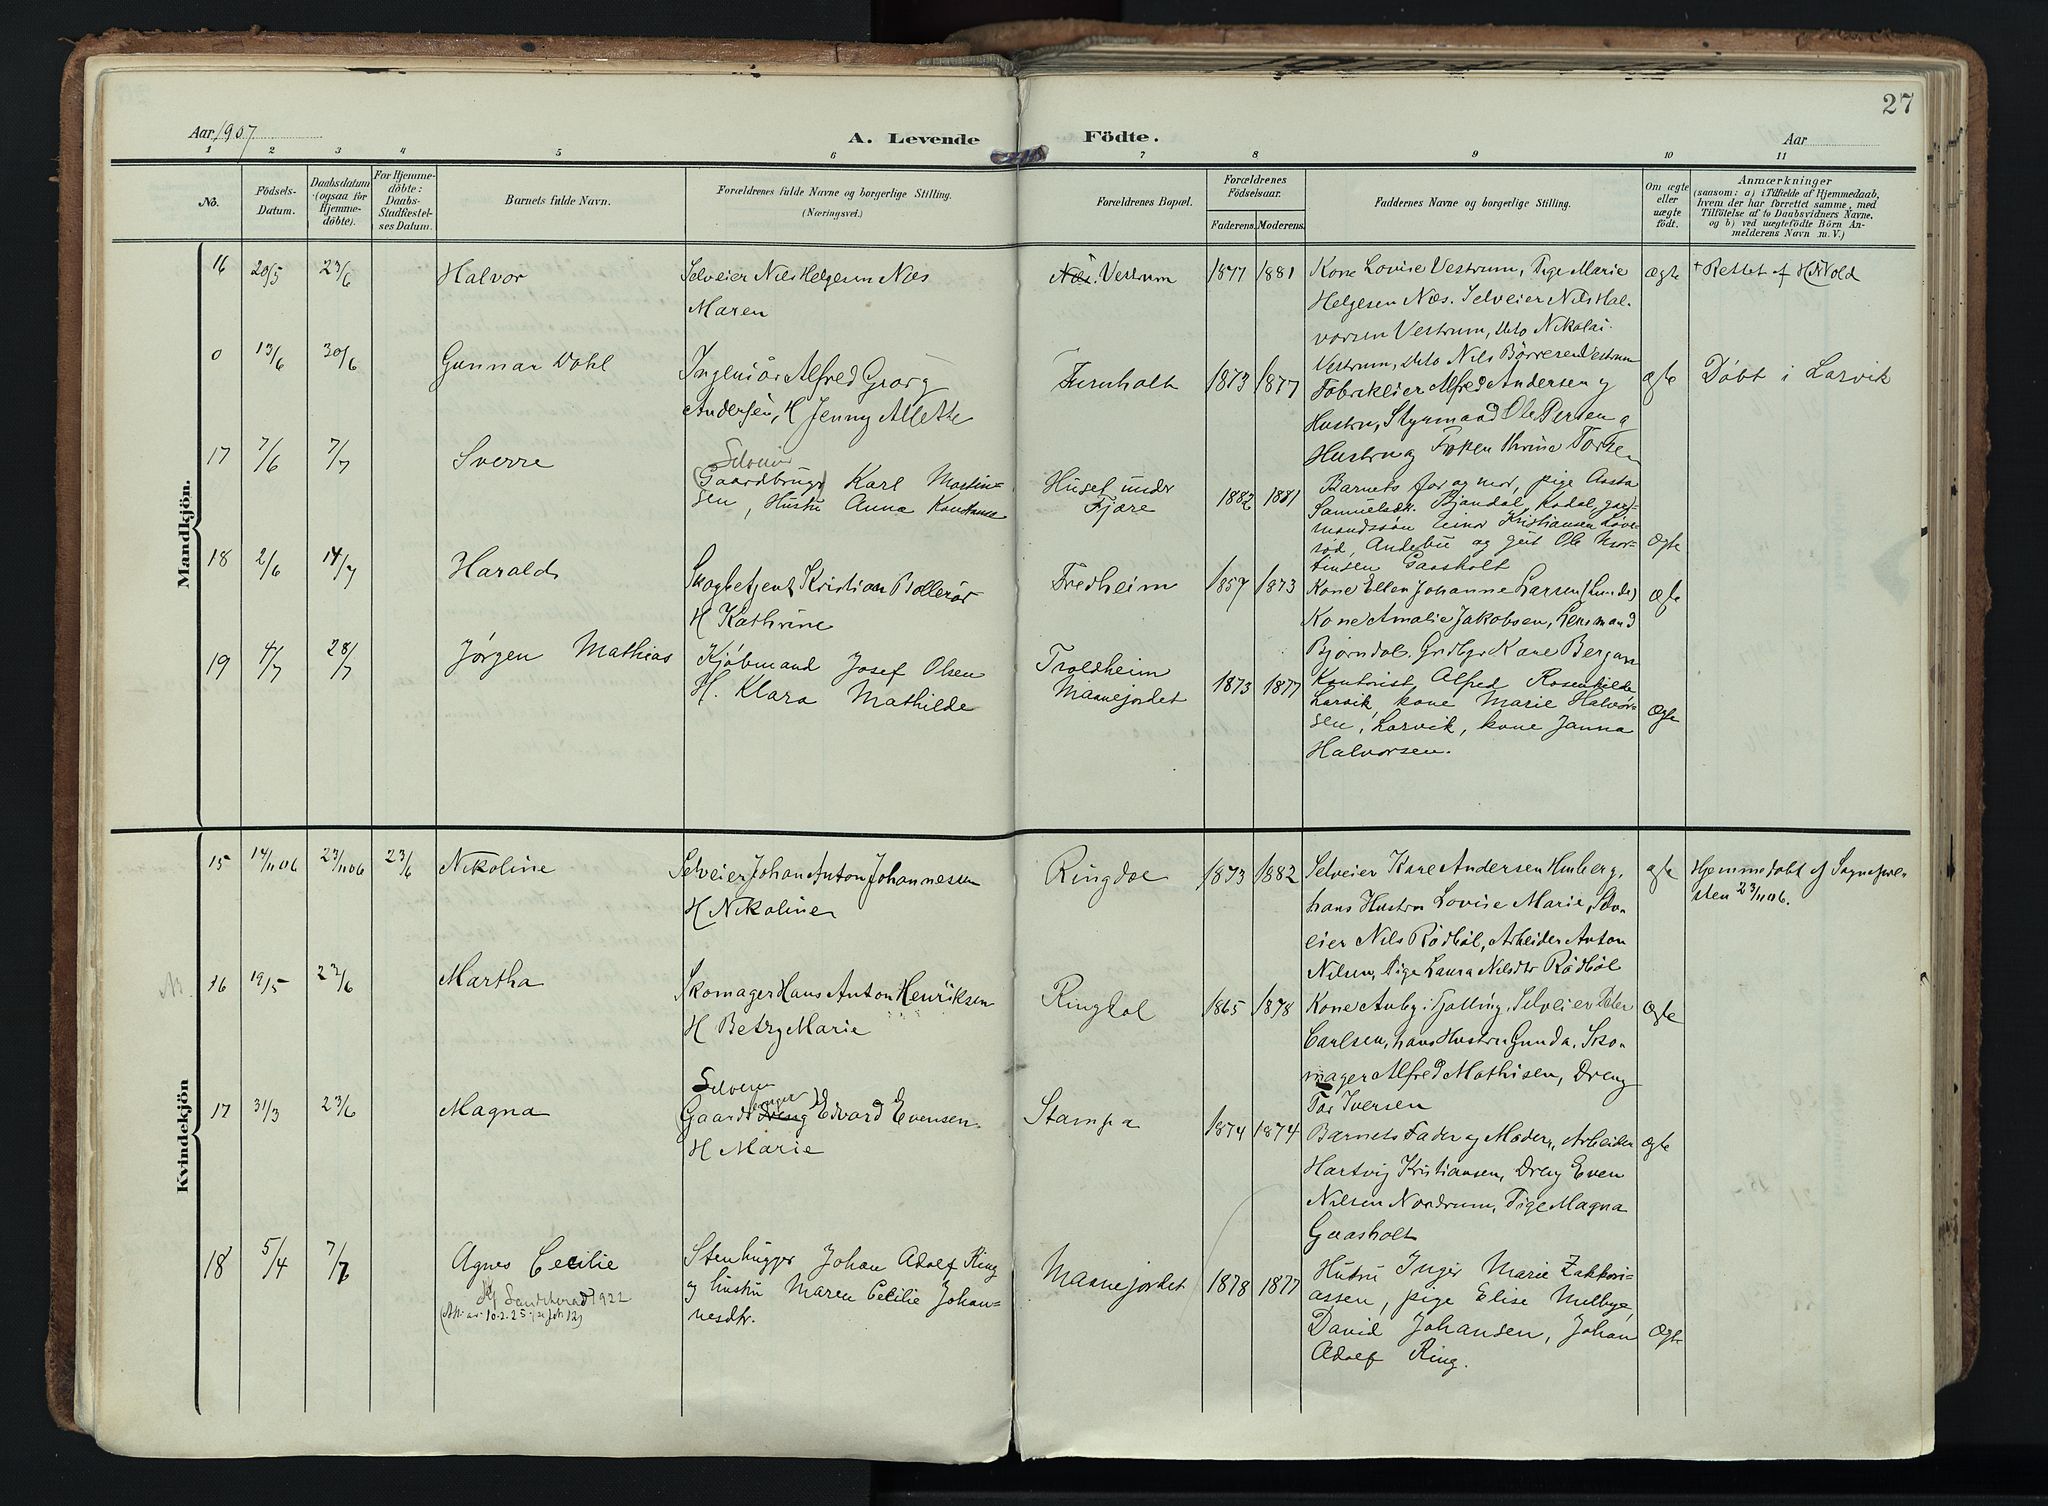 27
Aar 1907
A. Levende Födte.
Aar
1 2 3 4 5 6 7 8 9 10 11
No.
Födsels-
Datum.
Daabsdatum
(ogsaa for
Hjemme-
döbte).
For Hjemme-
döbte:
Daabs-
Stadfæstel-
ses Datum.
Barnets fulde Navn.
Forældrenes fulde Navne og borgerlige Stilling.
(Næringsvei.)
Forældrenes Bopæl.
Forældrenes
Födselsaar.
Faderens. Moderens.
Faddernes Navne og borgerlige Stilling.
Om ægte
eller
uægte
födt.
Anmærkninger
(saasom: a) i Tilfælde af Hjemmedaab,
hvem der har forrettet samme, med
Tilföielse af to Daabsvidners Navne,
og b) ved uægtefödte Börn An-
melderens Navn m. V.)
Mandkjön.
16 20/5 23/6 Halvor
Selveier Nils Helgesen Næs
Maren
Næs. Vestrum 1877 1881
Kone Lovise Vestrum, Pige Marie
Helgesen Næs. Selveier Nils Hal-
vorsen Vestrum, dito Nikolai
Vestrum, dito Nils Börresen Vestrum
ægte
+ Rettet af HN Vold
0 13/6 30/6 Gunnar Dahl
Ingeniör Alfred Georg
Andersen, H Jenny Alette
Furuholt 1873 1877
Fabrikeier Alfred Andersen og
Hustru, Styrmand Ole Persen og
Hustru og Fröken Thrine Torsen
ægte
Döbt i Larvik
17 7/6 7/7 Sverre
Selveier
(Gaardbruger) Karl Martin-
sen, Hustru Anna Konstanse
Huset under
Fjære
1882 1881
Barnets far og mor, pige Aasta
Samuelsdr. Bjøndal, Kodal, gaard-
mandssøn Einar Kristiansen Løve-
rød, Andebu og gut Ole Mar-
tinsen Gaasholt
Ægte
18 2/6 14/7 Harald
Skogbetjent Kristian Bollerör
H Kathrine
Fredheim 1857 1873
Kone Ellen Johanne Larsen (Lunde)
Kone Amalie Jakobsen, Lensmand
Bjørndal. Grdbgr Kare Bergan
Ægte
19 4/7 28/7 Jørgen Mathias
Kjöbmand Josef Olsen
H. Klara Mathilde
Troldheim
Maanejordet
1873 1877
Kontorist Alfred Rosenkilde
Larvik, kone Marie Halvor-
sen, Larvik, kone Janna
Halvorsen.
Ægte
Kvindekjön
15 14/11 06 23/11 06 23/6 Nikoline
Selveier Johan Anton Johannesen
H Nikoline
Ringdal 1873 1882
Selveier Kare Andersen Himberg,
hans Hustru Lovise Marie, Selv-
eier Nils Rödböl, Arbeider Anton
Nilsen, Pige Laura Nilsdtr Rödböl
ægte
Hjemmedöbt af Sognepre-
sten 23/11 06.
16 19/5 23/6 Martha
Skomager Hans Anton Henriksen
H Betzy Marie
Ringdal 1865 1878
Kone Auby i Fjölling, Selveier Peter
Carlsen, hans Hustru Gunda, Sko-
mager Alfred Mathisen, Dreng
Tor Iversen
Ægte
17 31/3 23/6 Magna
Selveier
Gaardbruger Edvard Evensen.
H Marie
Stampa 1874 1874
Barnets Fader og Moder, Arbeider
Hartvig Kristiansen, Dreng Even
Nilsen Nordrum, Pige Magna
Gaasholt
ægte
18 5/4 7/7 Agnes Cecilie
Sandeherad 1922
Stenhugger Johan Adolf Ring
og hustru Maren Cecilie Johan-
nesdtr.
Maanejordet 1878 1877
Hustru Inger Marie Zakkari-
assen, pige Elise Melbye,
David Johansen, Johan
Adolf Ring.
Ægte